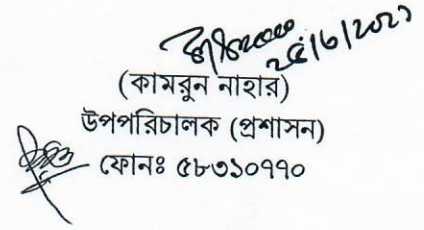 ২৫/৬/২০২১
(কামরুন নাহার)
উপপরিচালক (প্রশাসন)
ফোনঃ ৫৮৩১০৭৭০